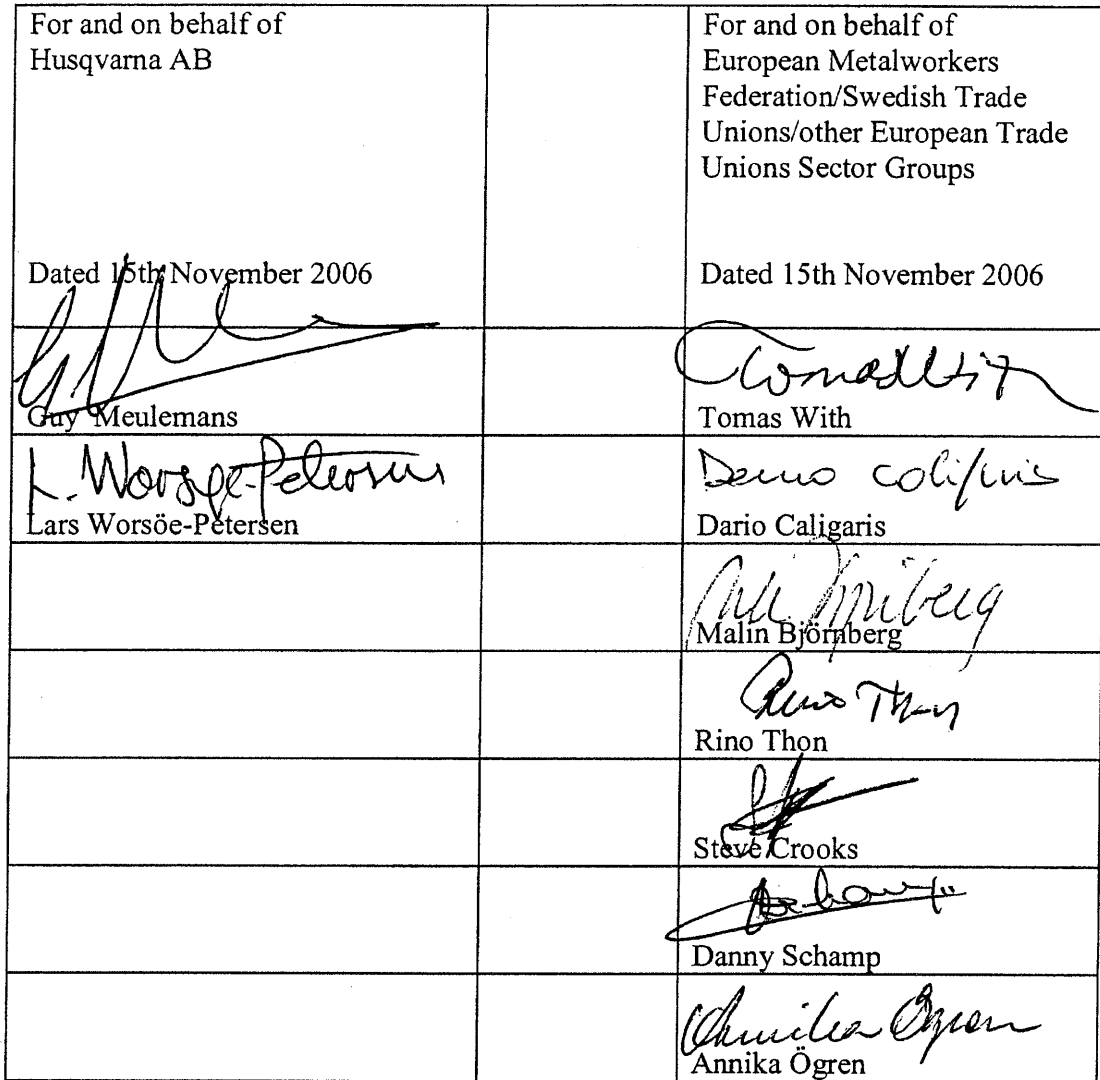 For and on behalf of
Husqvarna AB
Dated 15th November 2006
For and on behalf of
European Metalworkers
Federation/Swedish Trade
Unions/other European Trade
Unions Sector Groups
Dated 15th November 2006
Guy Meulemans
Tomas With
L. Worsøe-Petersen
Lars Worsöe-Petersen
Dario Caligaris
Malin Björnberg
Rino Thon
Steve Crooks
Danny Schamp
Annika Ögren
Annika Ögren